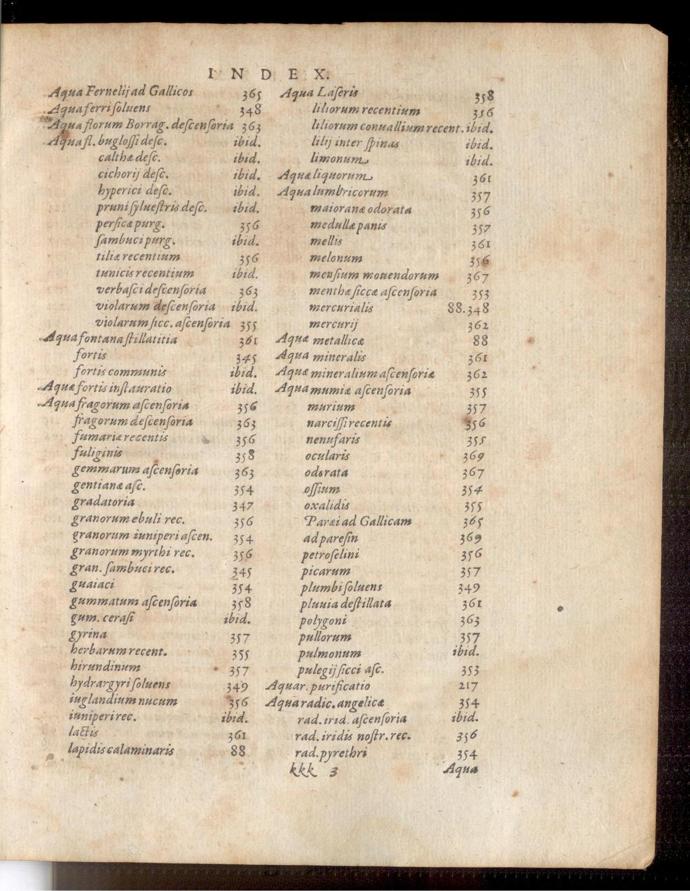 INDEX.
Aqua Fernelij ad Gallicos 365
Aqua ferri soluens 348
Aqua florum Borrag. descensoria 363
Aqua fl. buglossi desc. ibid.
calthæ desc. ibid.
cichorij desc. ibid.
hyperici desc. ibid.
pruni syluestris desc. ibid.
persicæ purg. 356
sambuci purg. ibid.
tiliæ recentium 356
tunicis recentium ibid.
verbasci descensoria 363
violarum descensoria ibid.
violarum sicc. ascensoria 355
Aqua fontana stillatitia 361
fortis 345
fortis communis ibid.
Aquæ fortis instauratio ibid.
Aqua fragorum ascensoria 356
fragorum descensoria 363
fumariæ recentis 356
fuliginis 358
gemmarum ascensoria 363
gentianæ asc. 354
gradatoria 347
granorum ebuli rec. 356
granorum iuniperi ascen. 354
granorum myrthi rec. 356
gran. sambuci rec. 345
guaiaci 354
gummatum ascensoria 358
gum. cerasi ibid.
gyrina 357
herbarum recent. 355
hirundinum 357
hydrargyri soluens 349
iuglandium nucum 356
iuniperi rec. ibid.
lactis 361
lapidis calaminaris 88
Aqua Laseris 358
liliorum recentium 356
liliorum conuallium recent. ibid.
lilij inter spinas ibid.
limonum ibid.
Aquæ liquorum 361
Aqua lumbricorum 357
maioranæ odorata 356
medullæ panis 357
mellis 361
melonum 356
mensium mouendorum 367
menthæ siccæ ascensoria 353
mercurialis 88.348
mercurij 362
Aquæ metallicæ 88
Aqua mineralis 361
Aquæ mineralium ascensoriæ 362
Aqua mumiæ ascensoria 355
murium 357
narcissi recentis 356
nenufaris 355
ocularis 369
odorata 367
ossium 354
oxalidis 355
Paræi ad Gallicam 365
ad paresin 369
petroselini 356
picarum 357
plumbi soluens 349
pluuia destillata 361
polygoni 363
pullorum 357
pulmonum ibid.
pulegij sicci asc. 353
Aquar. purificatio 217
Aqua radic. angelicæ 354
rad. irid. ascensoria ibid.
rad. iridis nostr. rec. 356
rad. pyrethri 354
kkk 3 Aqua